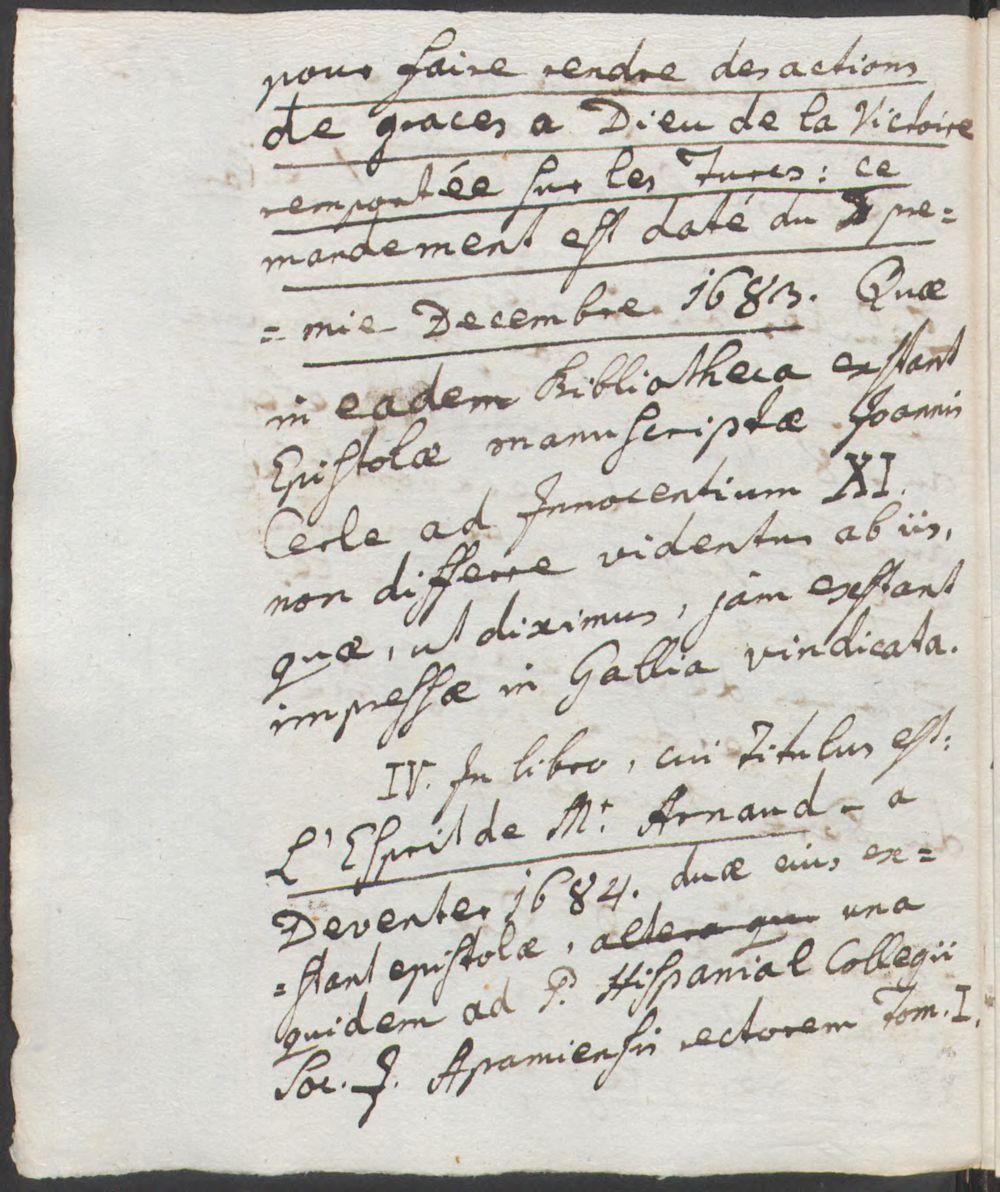 pour faire rendre des actions
de graces a Dieu de la Victoire
remportée sur les Turcs: ce
mandement est daté du pre=
=mie Decembre 1683. Quæ
in eadem Bibliotheca exstant
Epistolæ manuscriptæ Joannis
Cerle ad Innocentium XI.
non differre videntur ab iis,
quæ, ut diximus, jám exstant
impressæ in Gallia vindicata.
IV. In libro, cui Titulus est:
L'Esprit de Mr. Arnaud - a
Deventer 1684. duæ eius ex=
=stant epistolæ, altera qu una
quidem ad P. Hispanial Collegii
Soc. J. Apamiensis rectorem Tom. I.